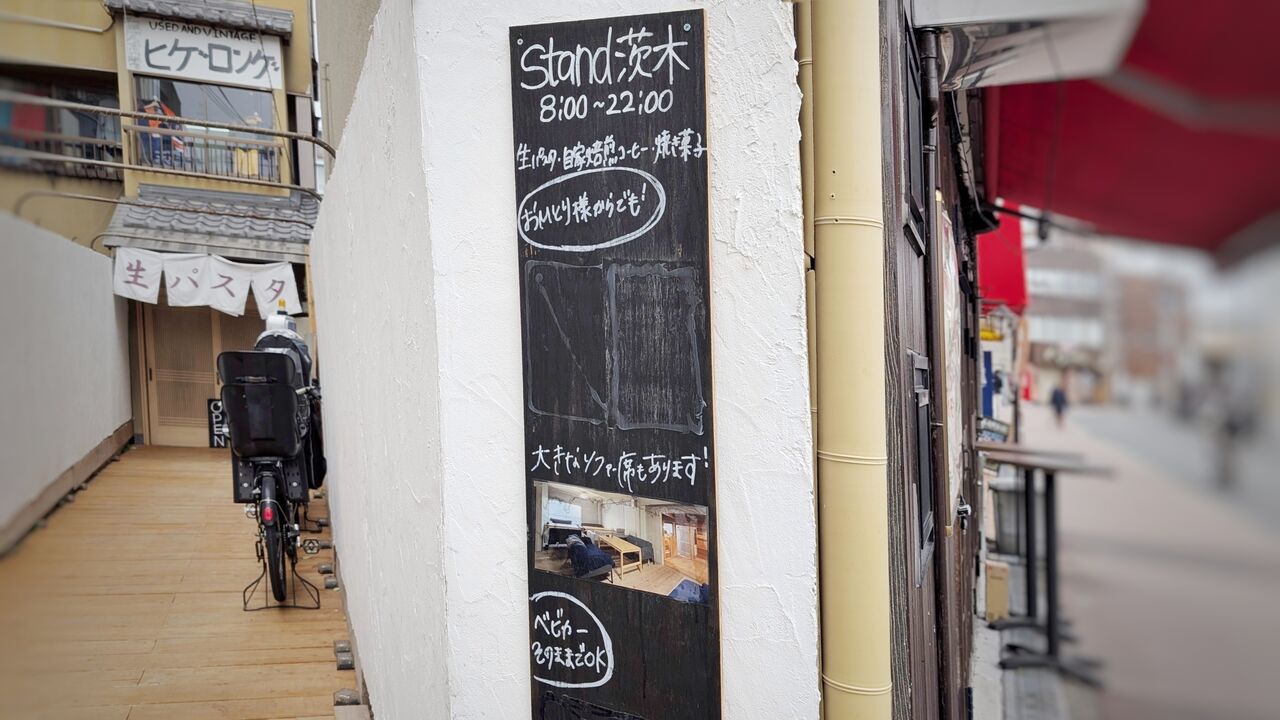 USED AND VINTAGE
ヒゲーロング
生パスタ
OPEN
stand茨木
8:00~22:00
生パスタ・自家焙煎コーヒー・焼き菓子
おひとり様からでも!
大きなソファー席もあります!
ベビカー
そのままでOK